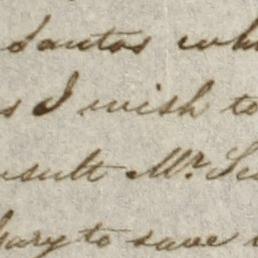 Santos wh
s I wish to
nsult Mr. Se
hary to save